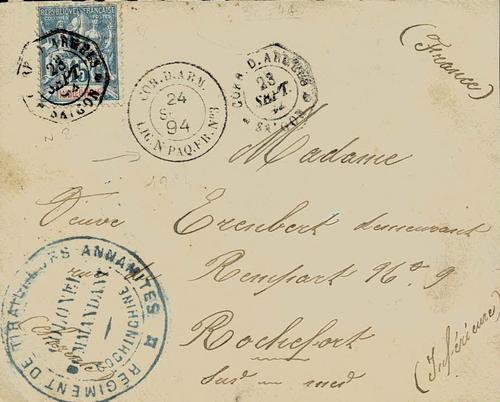 REPUBLIQUE FRANCAISE
15
CORR. D. ARMÉES
23
SEPT.
94
SAIGON
COR. D. ARM.
24
SE
94
LIG. N PAQ. FR. Nº 3
CORR. D. ARMÉES
23
SEPT.
94
SAIGON
(France)
Madame
Veuve Erembert demeurant
rue
Rempart Nº 9
Rochefort
sur mer
(Inférieure)
RÉGIMENT DE TIRAILLEURS ANNAMITES
COLONEL
COMMANDANT
COCHINCHINE